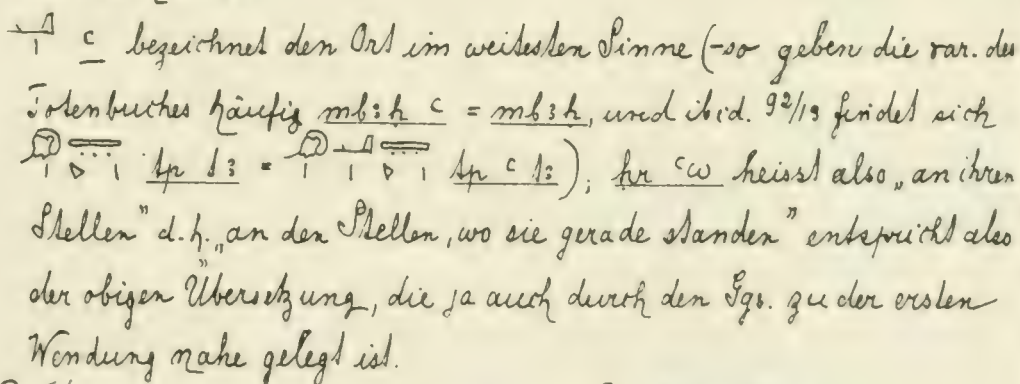 𓂝𓏤 c bezeichnet den Ort im weitesten Sinne (-so geben die var. des
Totenbuches häufig mbꜣḥ c = mbꜣḥ, und ibid. 92/13 findet sich
tp tꜣ = tp c tꜣ); ḥr cw heisst also „an ihren
Stellen" d.h. „an den Stellen, wo sie gerade standen" entspricht also
der obigen Übersetzung, die ja auch durch den Ggs. zu der ersten
Wendung nahe gelegt ist.